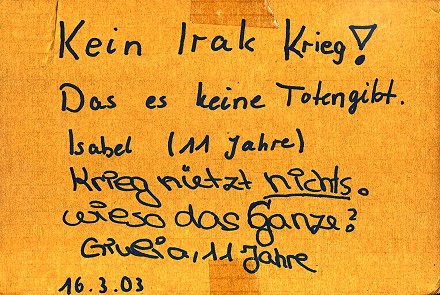 Kein Irak Krieg!
Das es keine Totengibt.
Isabel (11 Jahre)
Krieg nützt nichts.
wieso das Ganze?
11 Jahre
16.3.03